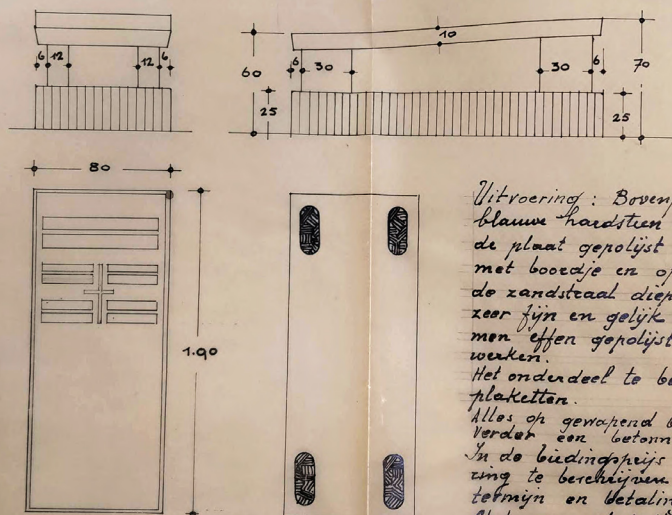 6 12 12 6
60
25
6 30 10 30 6
70
25
80
1.90
Uitvoering : Boven
blauwe hardsteen
de plaat gepolijst
met boordje en op
de zandstraal diep
zeer fijn en gelijk
men effen gepolijst
werken.
Het onderdeel te be
plaketten.
Alles op gewapend b
Verder een betonn
In de biedingsprijs
ring te beschrijven
termijn en betalin